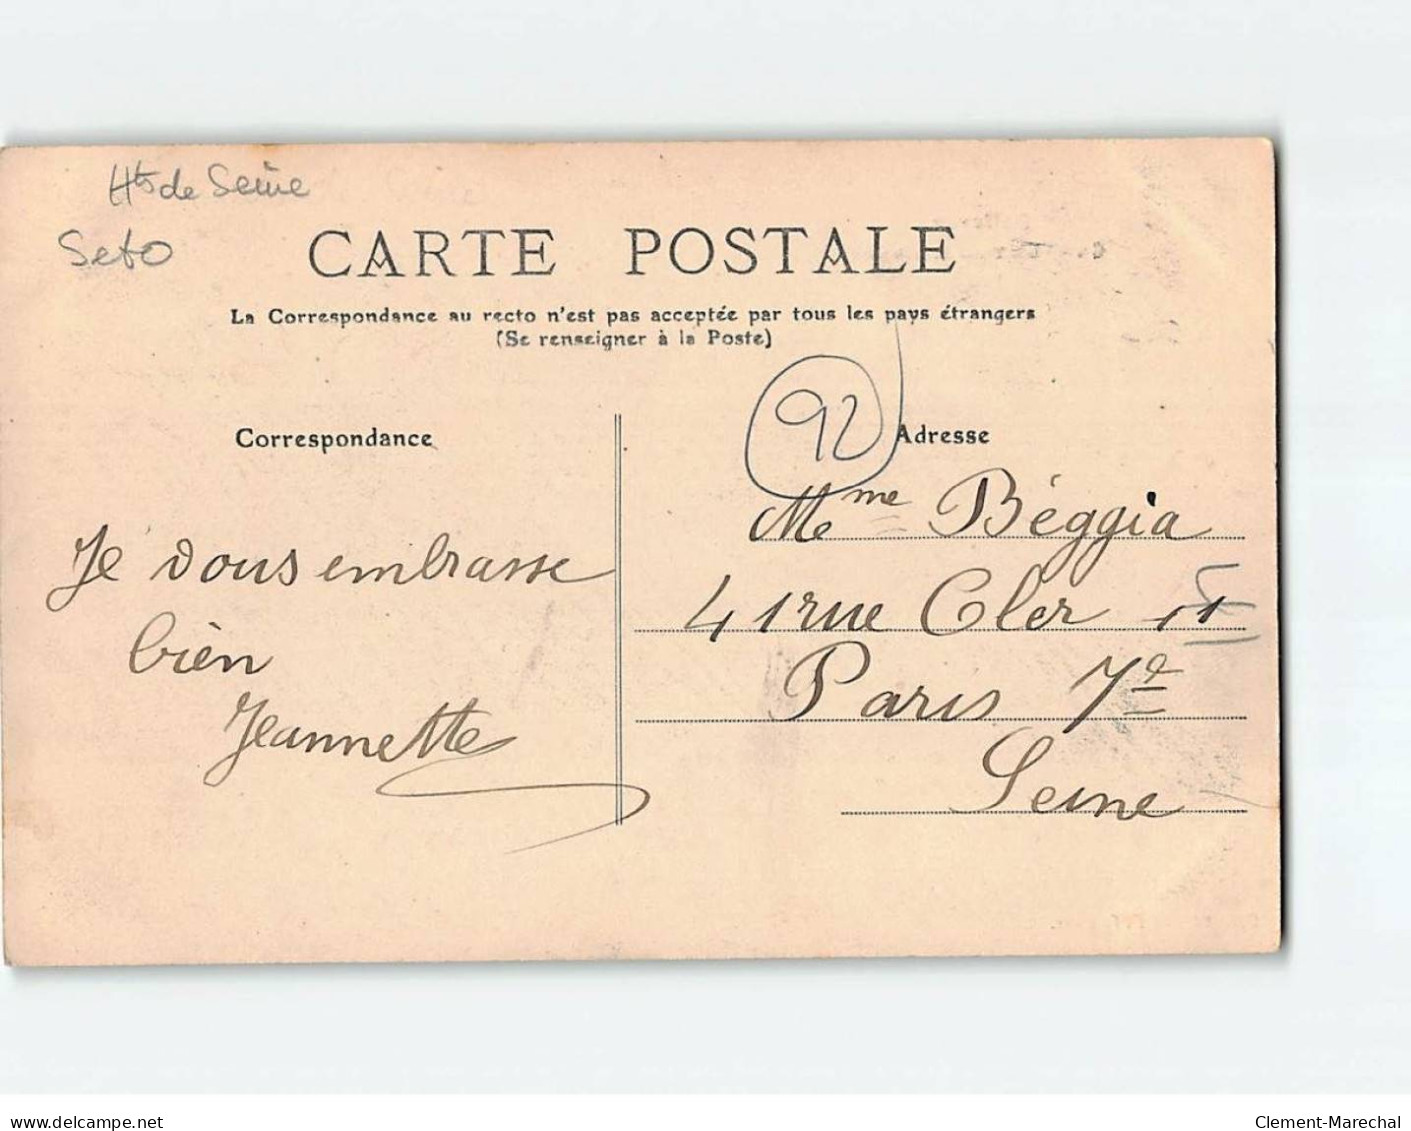 Hts de Seine
Seto
CARTE POSTALE
La Correspondance au recto n'est pas acceptée par tous les pays étrangers
(Se renseigner à la Poste)
92
Correspondance
Adresse
Je vous embrasse
bien
Jeannette
Mme Béggia
41 rue Cler
Paris 7e
Seine
www.delcampe.net
Clement-Marechal